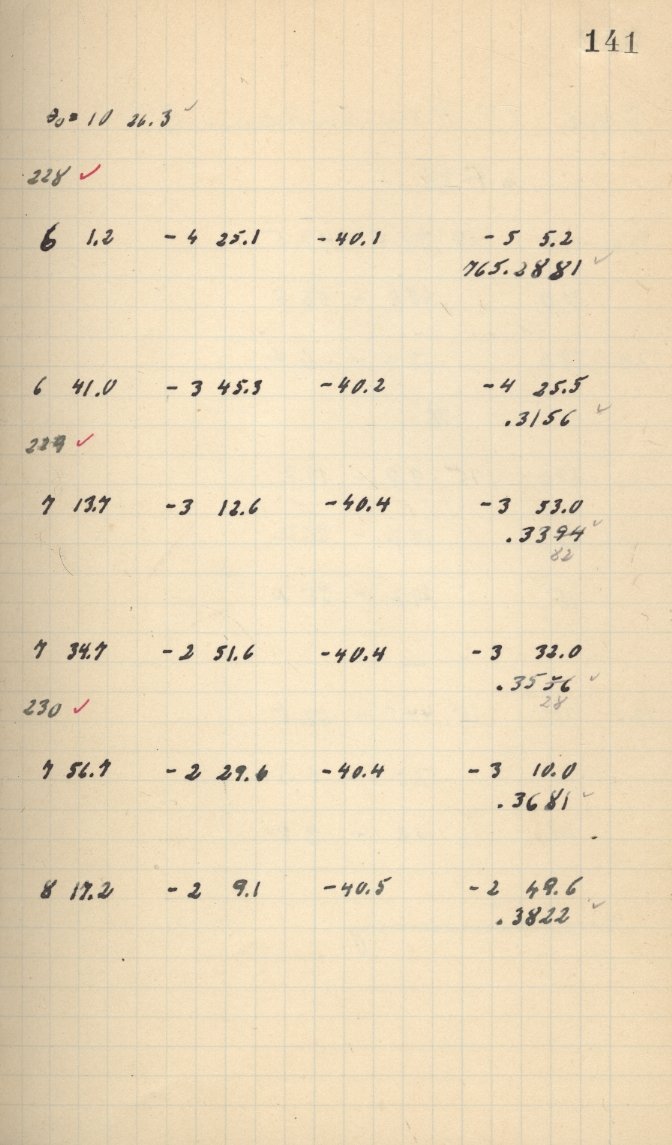 141
θ₀ = 10 26.3 ✓
228 ✓
6 1.2 - 4 25.1 - 40.1 - 5 5.2
765.2881 ✓
6 41.0 - 3 45.3 - 40.2 - 4 25.5
.3156 ✓
229 ✓
7 13.7 - 3 12.6 - 40.4 - 3 53.0
.3394 ✓
82
7 34.7 - 2 51.6 - 40.4 - 3 32.0
.3556 ✓
28
230 ✓
7 56.7 - 2 29.6 - 40.4 - 3 10.0
.3681 ✓
8 17.2 - 2 9.1 - 40.5 - 2 49.6
.3822 ✓